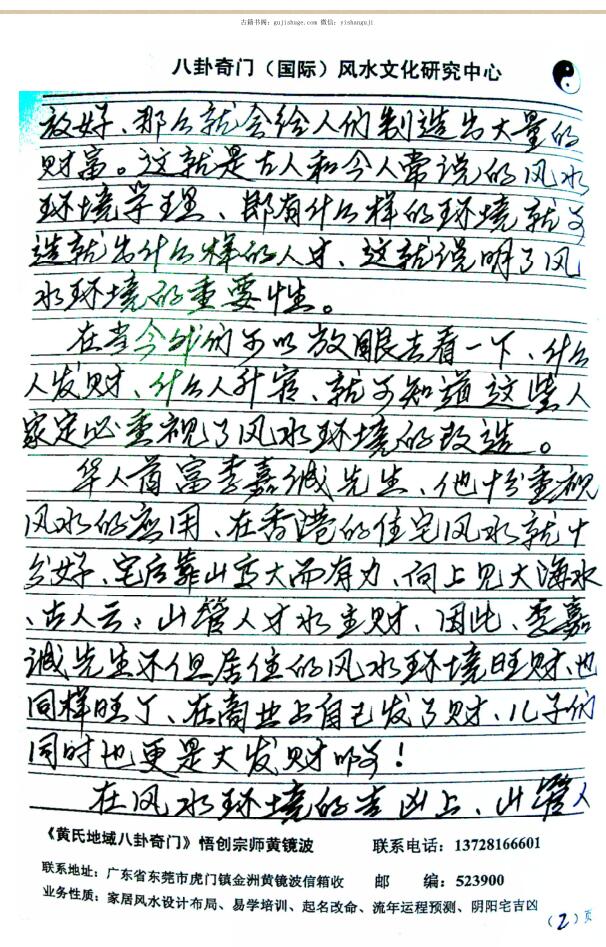 古籍书阁：gujishuge.com 微信：yishanguji
八卦奇门（国际）风水文化研究中心
放好、那么就会给人们制造出大量的
财富。这就是古人和今人常说的风水
环境学理、即有什么样的环境就可
造就出什么样的人才、这就说明了风
水环境的重要性。
在当今我们可以放眼去看一下、什么
人发财、什么人升官、就可知道这些人
家定必重视了风水环境的改造。
华人首富李嘉诚先生、他十分重视
风水的应用、在香港的住宅风水就十
分好、宅后靠山高大而有力、向上见大海水
、古人云：山管人才水主财、因此、李嘉
诚先生不但居住的风水环境旺财、也
同样旺丁、在商业上自己发了财、儿子们
同时也更是大发财呀！
在风水环境的吉凶上、山管人
《黄氏地域八卦奇门》悟创宗师黄镜波 联系电话：13728166601
联系地址：广东省东莞市虎门镇金洲黄镜波信箱收 邮 编：523900
业务性质：家居风水设计布局、易学培训、起名改命、流年运程预测、阴阳宅吉凶
（2）页